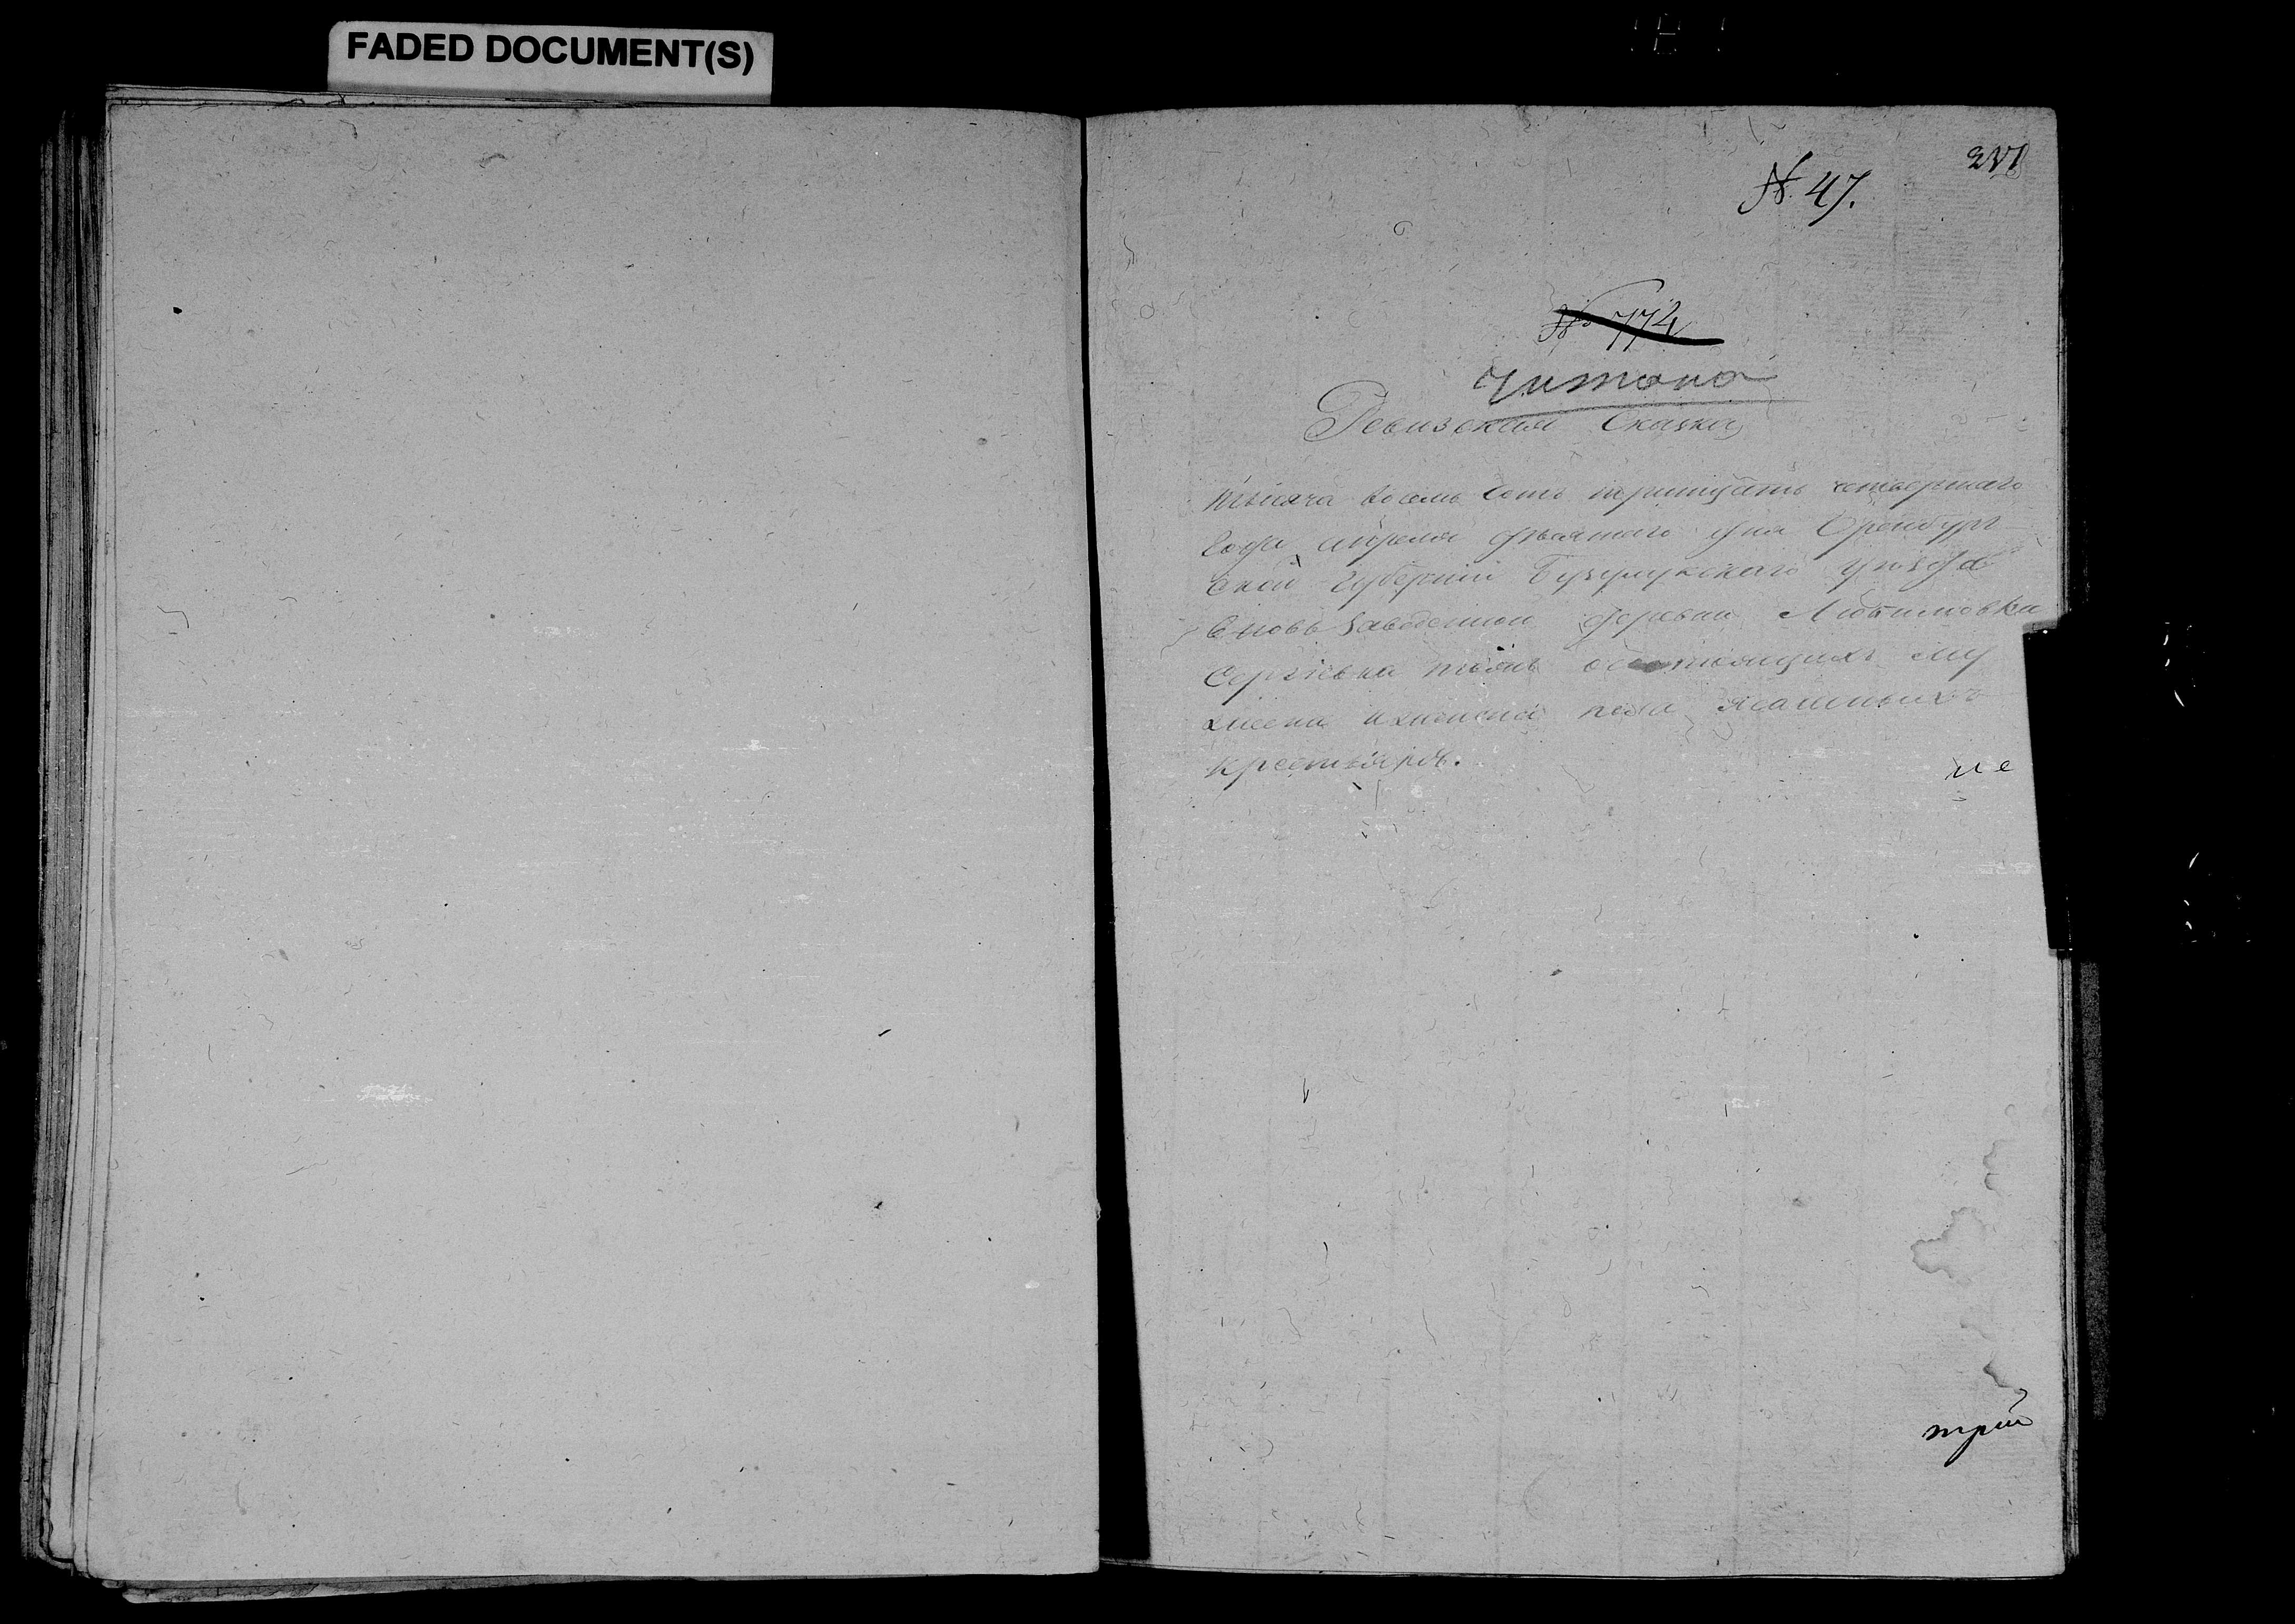 FADED DOCUMENT(S)
№ 47.
№ 774
Читано
Ревизская Сказка
тысяча восемь сотъ тритцать четвертаго
Года апреля девятаго дня Оренбург
ской Губернии Бузулукского уезда
Вновь заведенной деревни Любимовка
Сергiевка тожъ о состоящихъ му
жеска и женска пола Ясашныхъ
крестьянъ.
трий